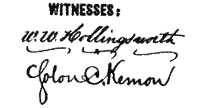 WITNESSES:
W. W. Hollingsworth
Colon C. Kemon